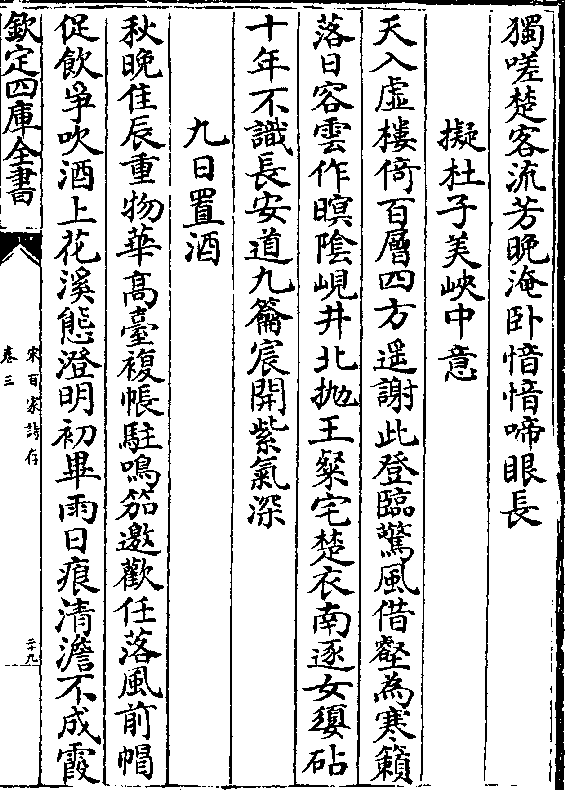 獨嗟楚客流芳晚淹卧愔愔啼眼長
擬杜子美峽中意
天入虛樓倚百層四方遥謝此登臨驚風借壑為寒籟
落日容雲作暝陰峴井北抛王粲宅楚衣南逐女嬃砧
十年不識長安道九籥宸開紫氣深
九日置酒
秋晚佳辰重物華高臺複帳駐鳴笳邀歡任落風前帽
促飲爭吹酒上花溪態澄明初畢雨日痕清澹不成霞
欽定四庫全書
宋百家詩存
卷三
二十九